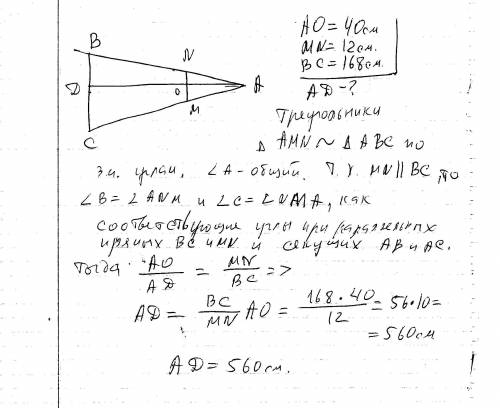 B
N
D
O
A
M
C
AO = 40см
MN = 12см.
BC = 168см.
AD - ?
Треугольники
Δ AMN ~ Δ ABC по
3м. углам, ∠A - общий. Т.к. MN || BC, то
∠B = ∠ANM и ∠C = ∠NMA, как
соответствующие углы при параллельных
прямых BC и MN и секущих AB и AC.
Тогда: AO/AD = MN/BC =>
AD = BC/MN AO = 168·40/12 = 56·10 =
= 560см
AD = 560см.